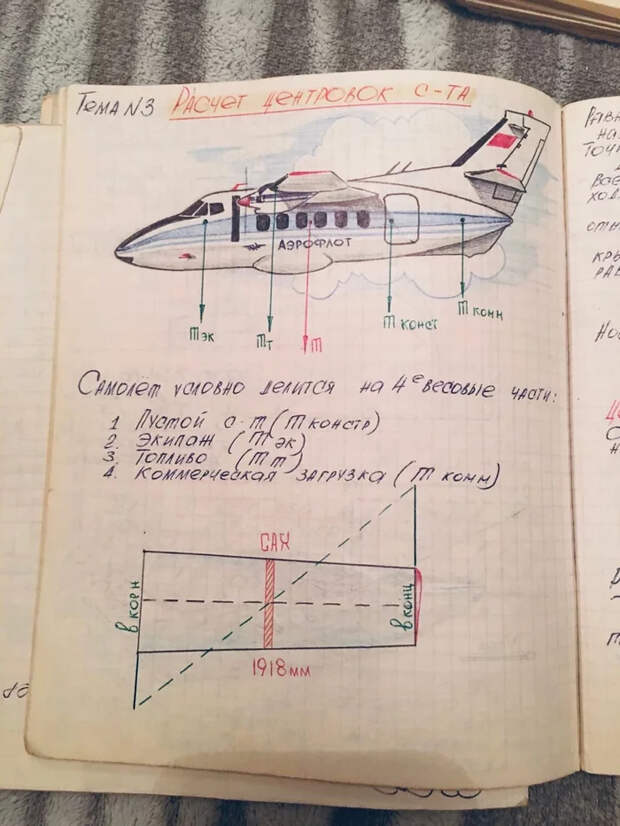 Тема N3 Расчет центровок с-та
Аэрофлот
m эк
m т
m
m конст
m конн
Самолет условно делится на 4е весовые части:
1 Пустой с-т (m констр)
2. Экипаж (m эк)
3. Топливо (m т)
4. Коммерческая загрузка (m конн)
САХ
в корн
в конц
1918 мм